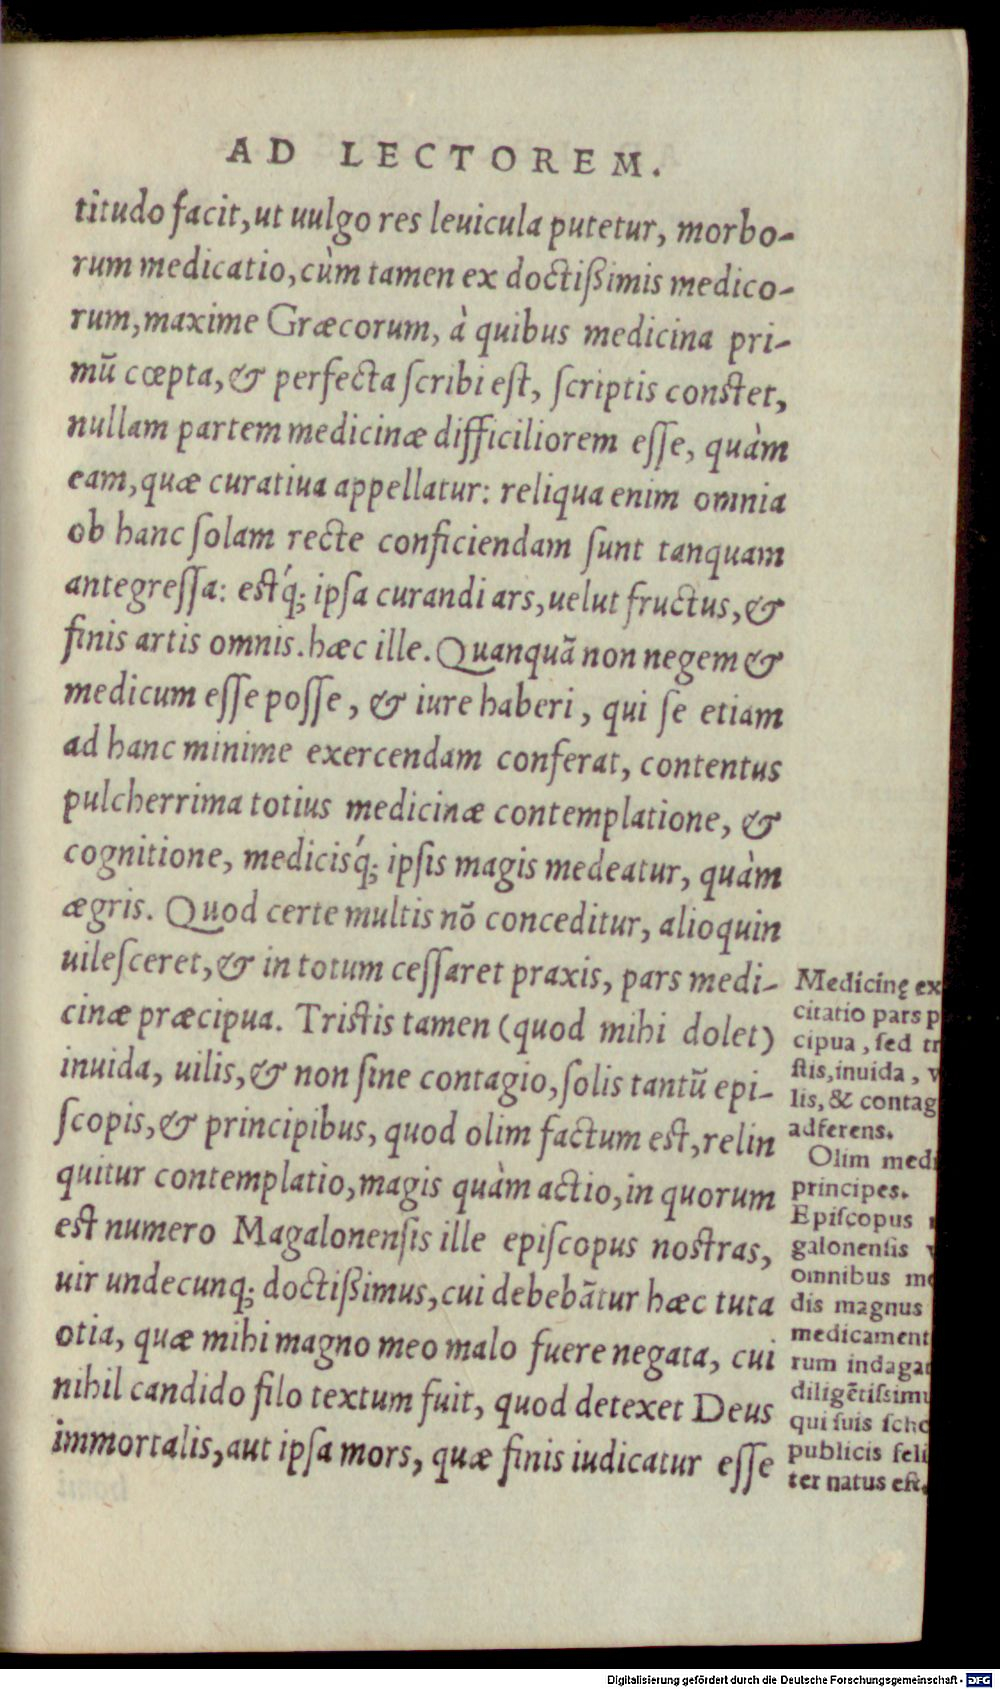 AD LECTOREM.
titudo facit, ut uulgo res leuicula putetur, morbo-
rum medicatio, cùm tamen ex doctißimis medico-
rum, maxime Græcorum, à quibus medicina pri-
mū cœpta, & perfecta ſcribi eſt, ſcriptis conſtet,
nullam partem medicinæ difficiliorem eſſe, quàm
eam, quæ curatiua appellatur: reliqua enim omnia
ob hanc ſolam recte conficiendam ſunt tanquam
antegreſſa: eſtq́; ipſa curandi ars, uelut fructus, &
finis artis omnis. hæc ille. Quanquā non negem &
medicum eſſe poſſe, & iure haberi, qui ſe etiam
ad hanc minime exercendam conferat, contentus
pulcherrima totius medicinæ contemplatione, &
cognitione, medicisq́; ipſis magis medeatur, quàm
ægris. Quod certe multis nō conceditur, alioquin
uileſceret, & in totum ceſſaret praxis, pars medi-
cinæ præcipua. Triſtis tamen (quod mihi dolet)
inuida, uilis, & non ſine contagio, ſolis tantū epi-
ſcopis, & principibus, quod olim factum eſt, relin
quitur contemplatio, magis quàm actio, in quorum
eſt numero Magalonenſis ille epiſcopus noſtras,
uir undecunq; doctißimus, cui debebātur hæc tuta
otia, quæ mihi magno meo malo fuere negata, cui
nihil candido filo textum fuit, quod detexet Deus
immortalis, aut ipſa mors, quæ finis iudicatur eſſe
Medicinę ex
citatio pars p
cipua, ſed tr
ſtis, inuida, v
lis, & contag
adferens.
Olim medi
principes.
Epiſcopus
galonenſis
omnibus mo
dis magnus
medicament
rum indagat
diligētiſsimu
qui ſuis ſcho
publicis feli
ter natus eſt.
Digitalisierung gefördert durch die Deutsche Forschungsgemeinschaft - DFG